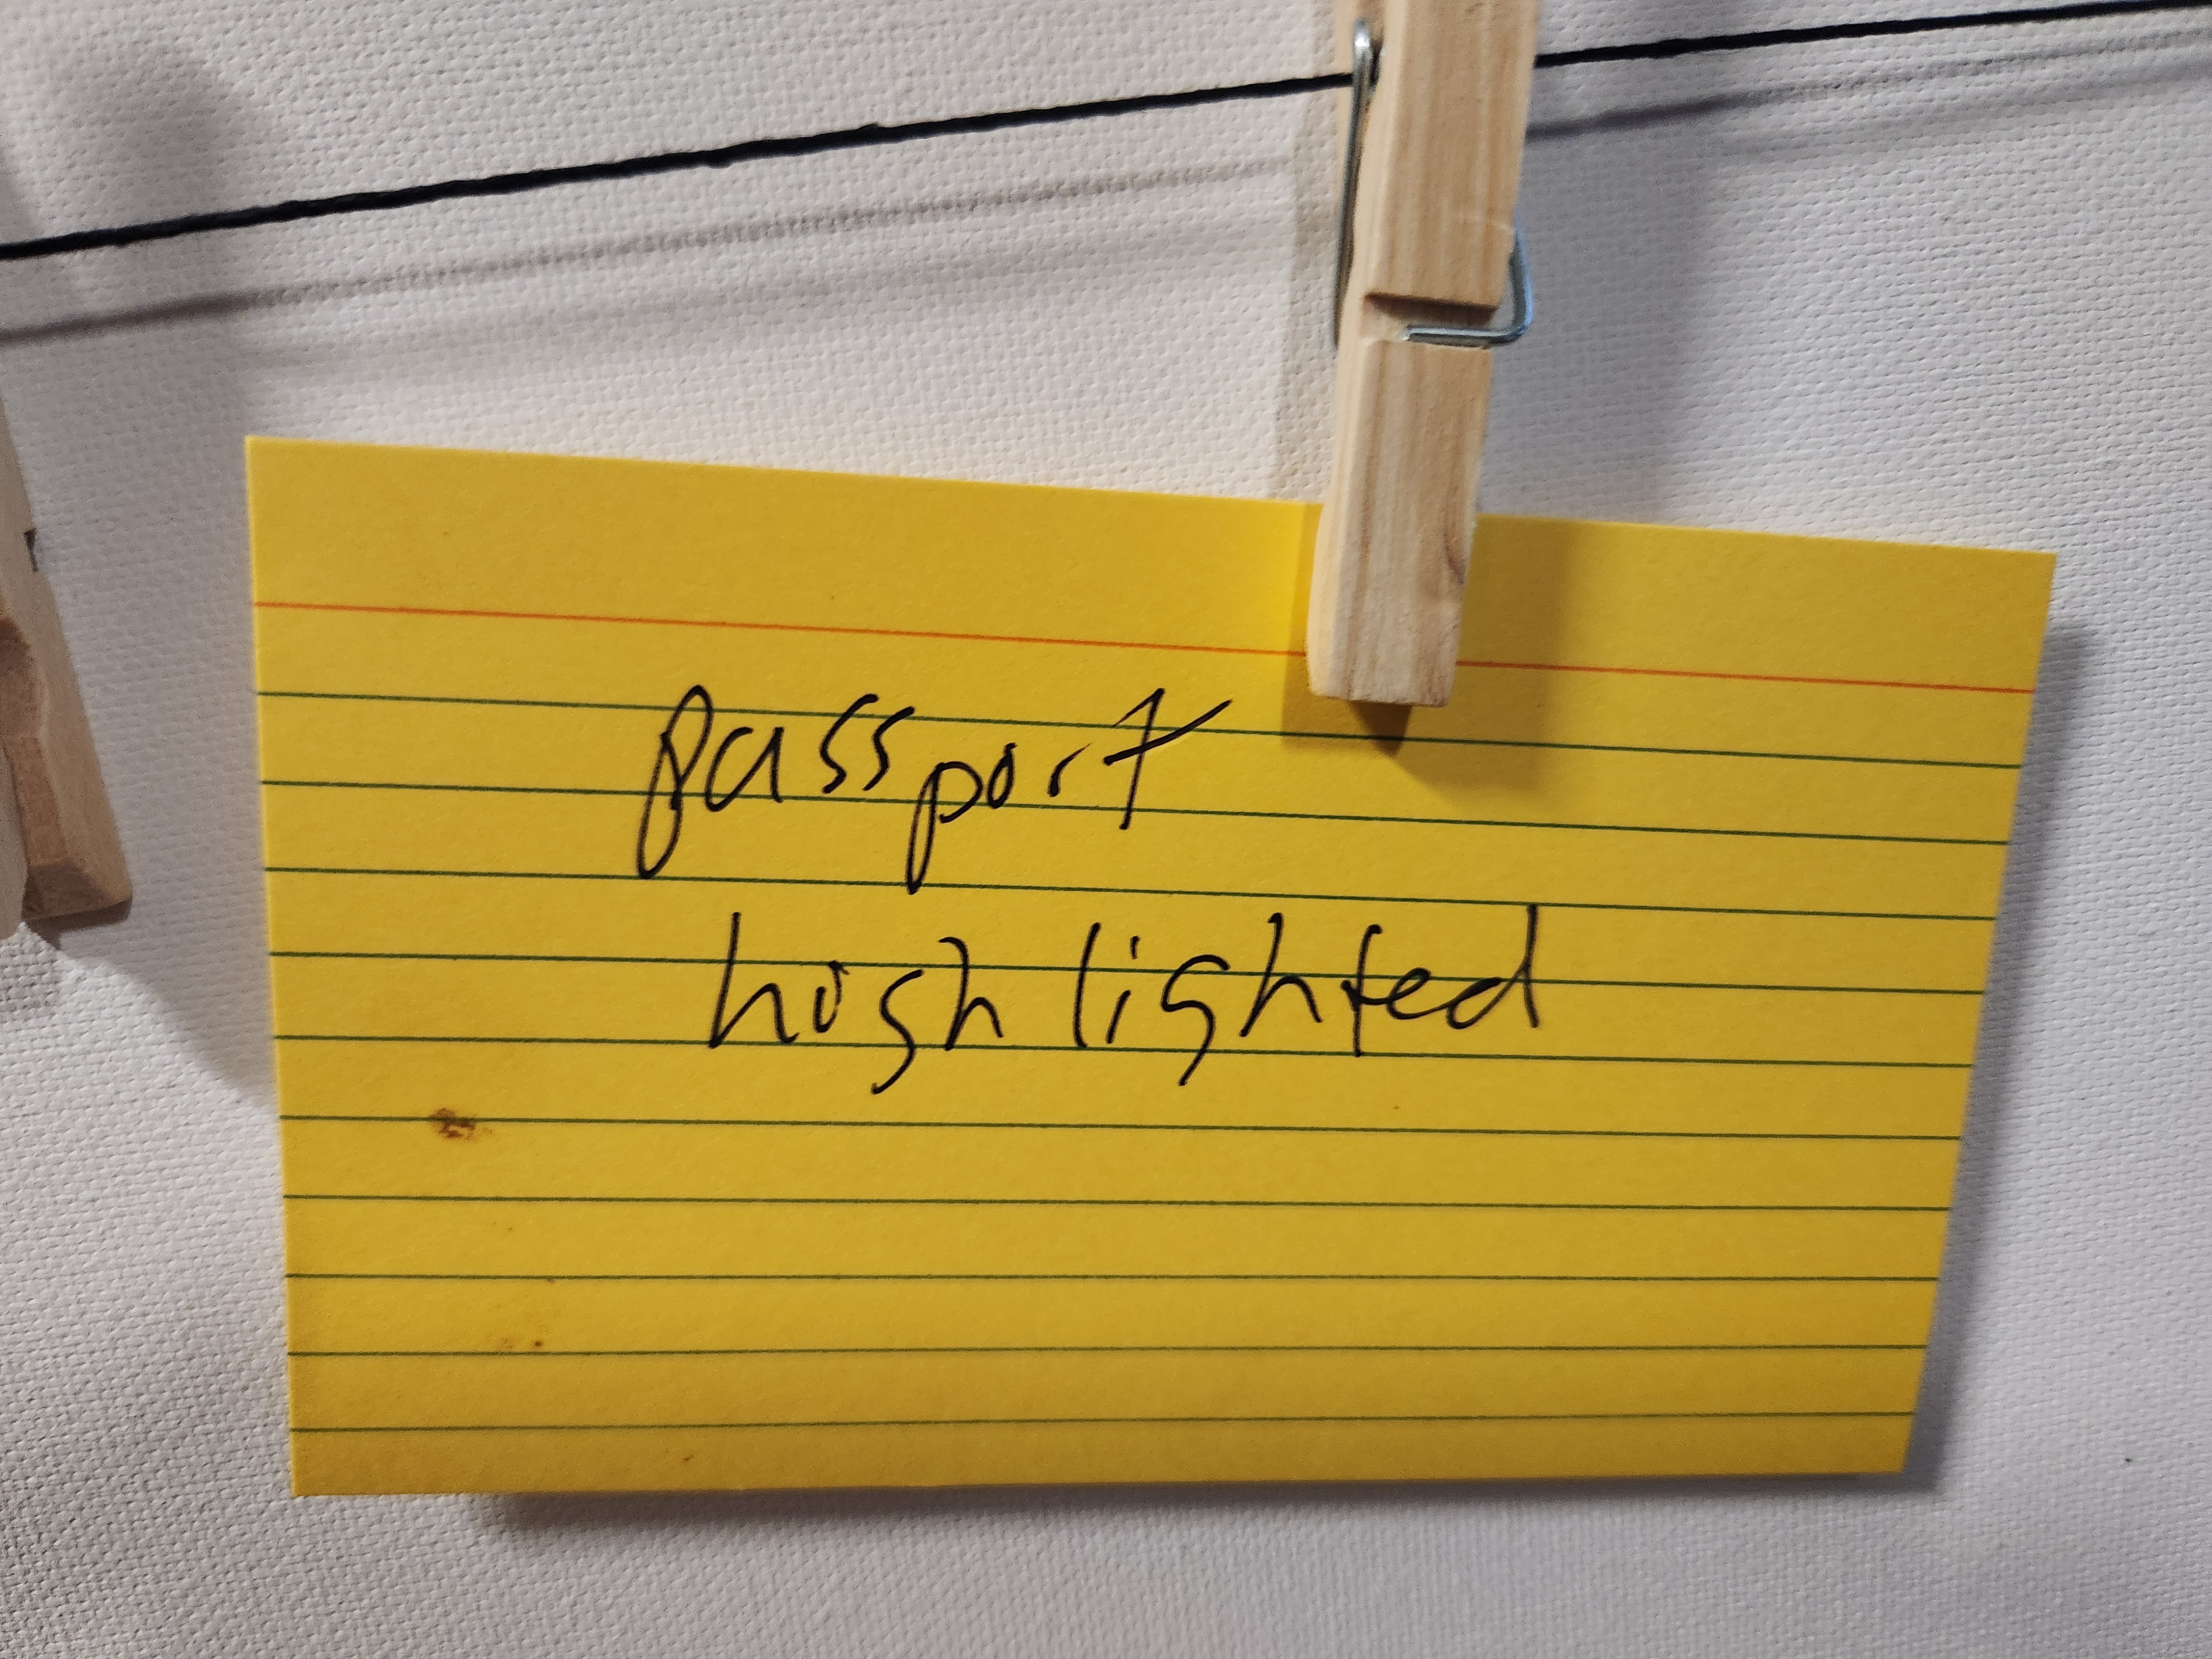 passport
highlighted